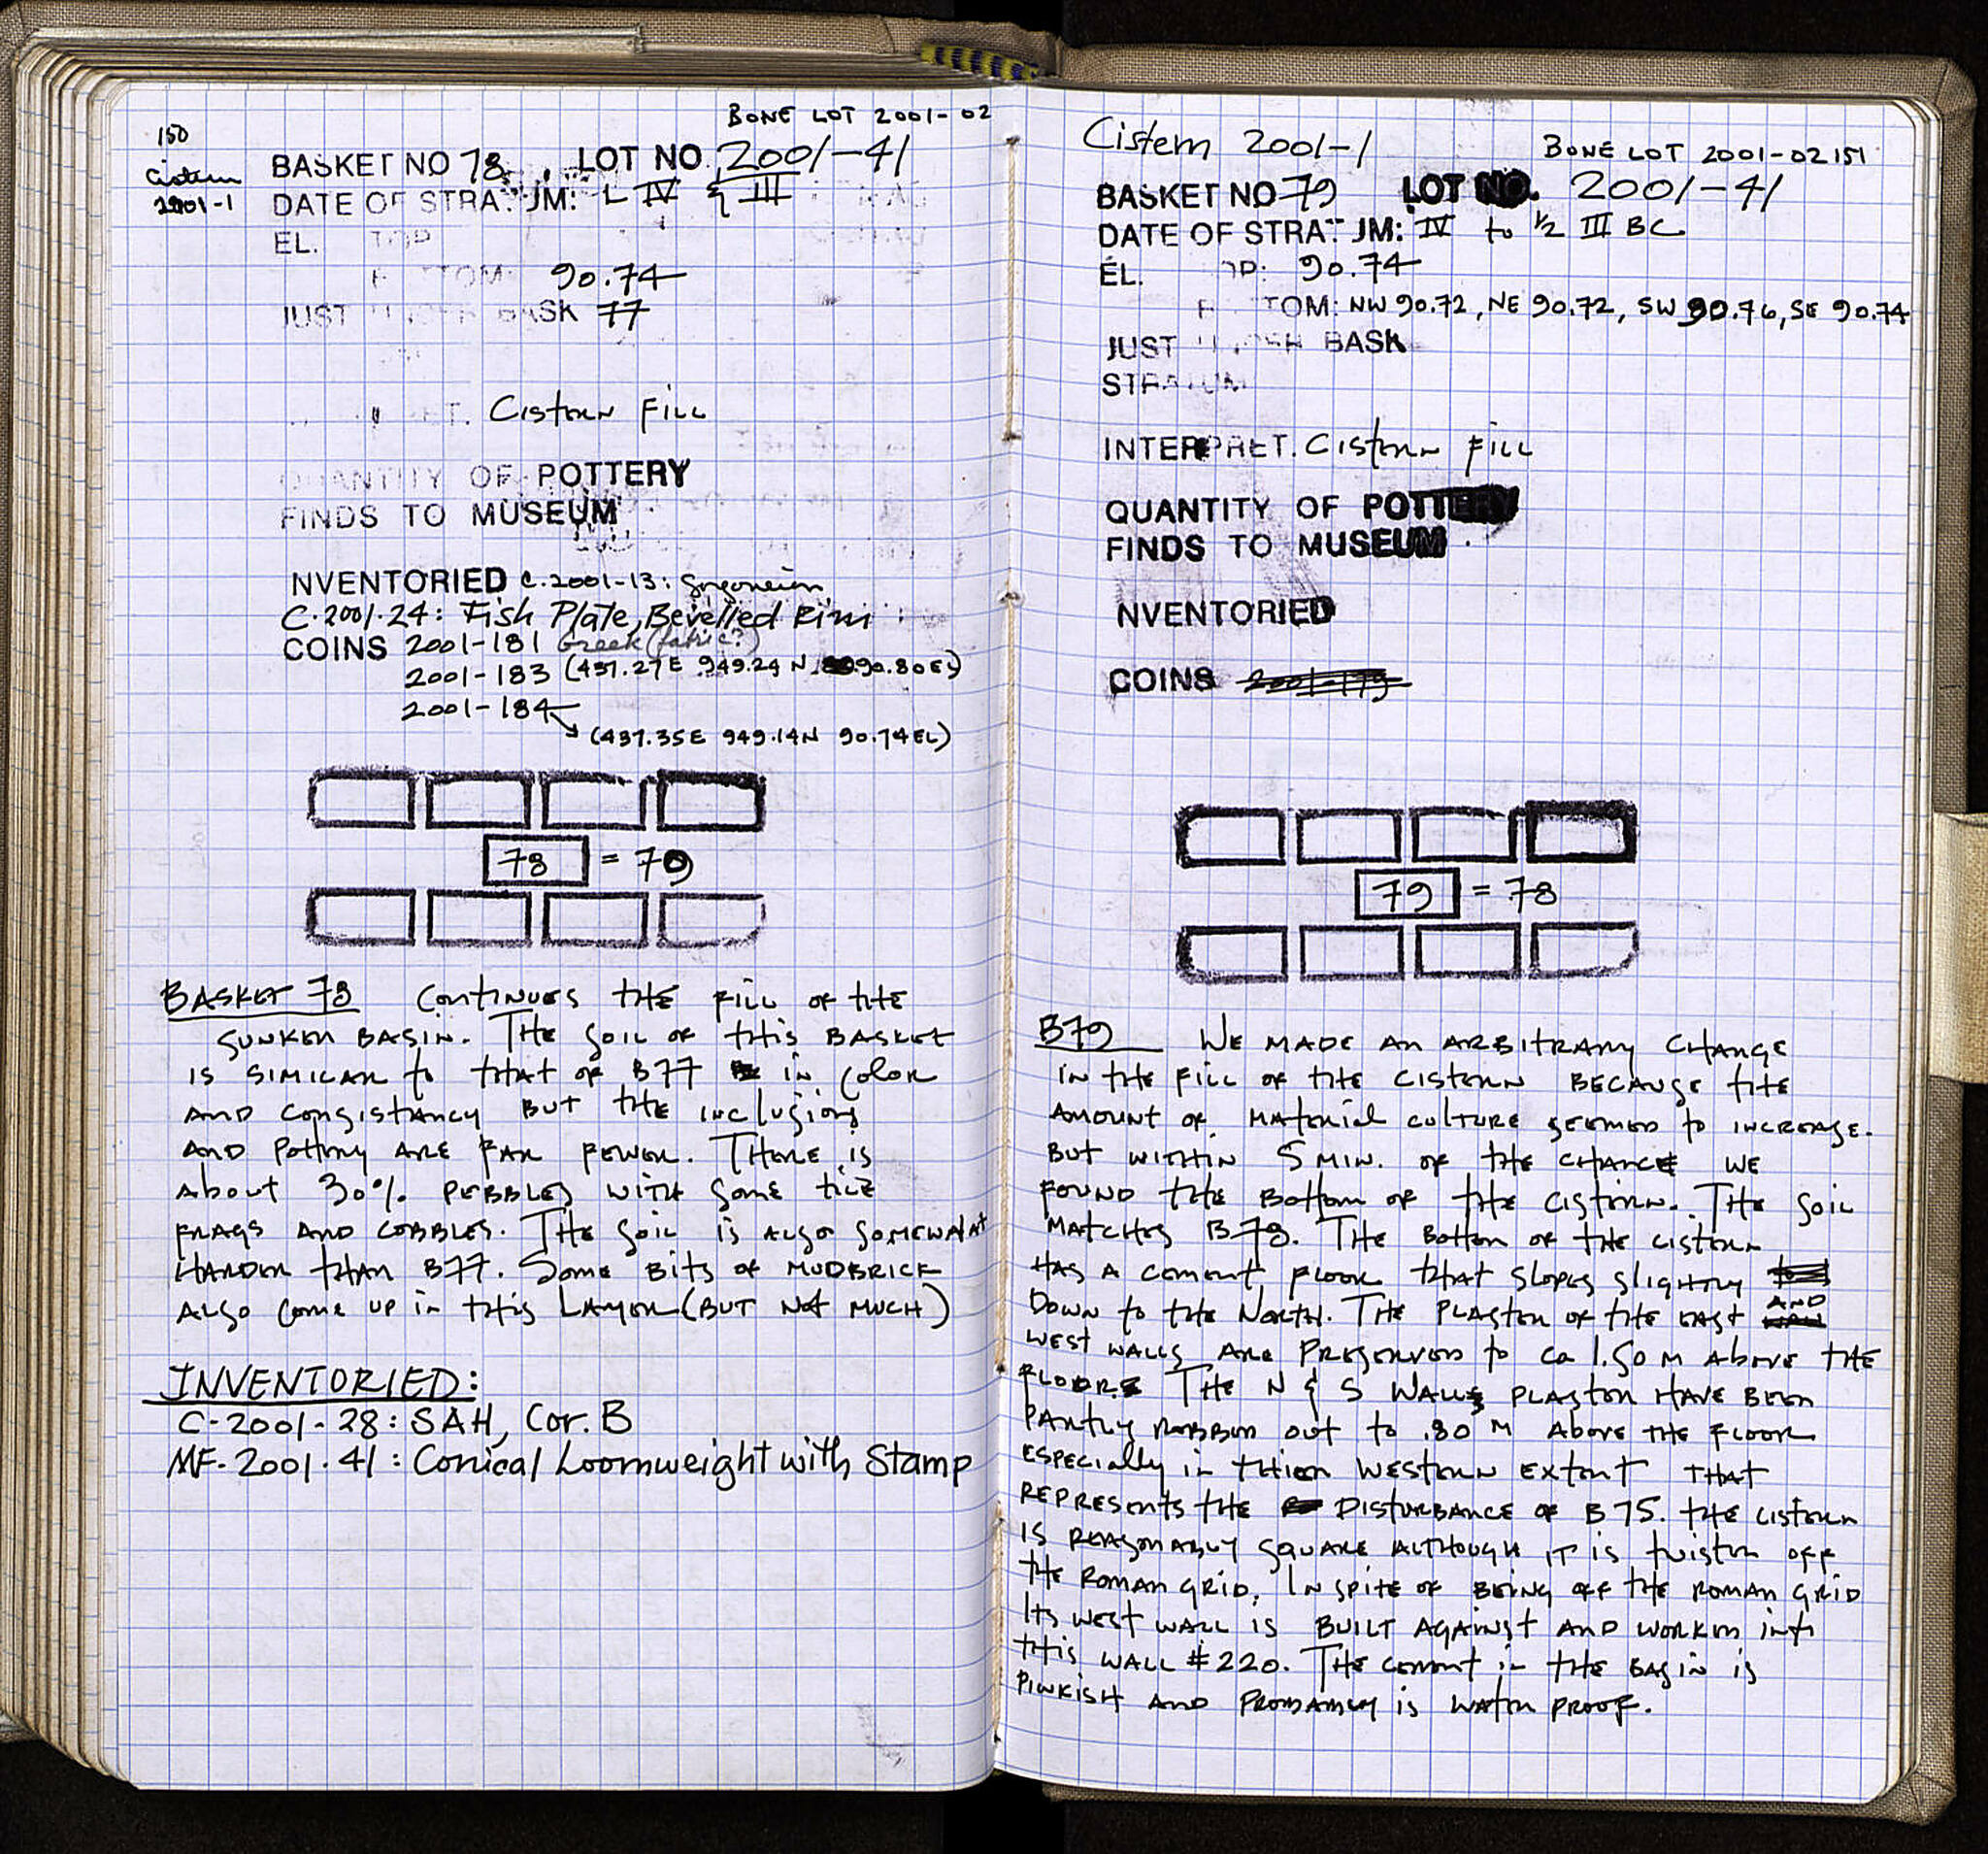 BONE LOT 2001-02
150
Cistern
2001-1
BASKET NO 78 LOT NO. 2001-41
DATE OF STRA JM: L IV & III
EL. TOP
TOM: 90.74
JUST UNDER BASK 77
ET. Cistern Fill
QUANTITY OF POTTERY
FINDS TO MUSEUM
NVENTORIED C.2001-13: Gorgoneion
C.2001.24: Fish Plate, Bevelled Rim
COINS 2001-181 Greek (fabric?)
2001-183 (437.27E 949.24 N 90.80 EL)
2001-184
(437.35E 949.14N 90.74 EL)
78 = 79
BASKET 78 CONTINUES THE FILL OF THE
SUNKEN BASIN. THE SOIL OF THIS BASKET
IS SIMILAR to THAT OF B77 in COLOR
AND CONSISTANCY BUT THE INCLUSIONS
AND Pottery ARE FAR FEWER. THERE IS
About 30% PEBBLES WITH SOME TILE
FRAGS AND COBBLES. THE SOIL IS ALSO SOMEWHAT
HARDER THAN B77. SOME BITS OF MUDBRICK
ALSO COME UP IN THIS LAYER (BUT NOT MUCH)
INVENTORIED:
C-2001-28: SAH, Cor. B
MF-2001-41: Conical Loomweight with Stamp
Cistern 2001-1
BONE LOT 2001-02 151
BASKET NO 79 LOT NO. 2001-41
DATE OF STRAT JM: IV to 1/2 III BC
EL. OP: 90.74
TOM: NW 90.72, NE 90.72, SW 90.76, SE 90.74
JUST UNDER BASK
STRATUM
INTERPRET. Cistern Fill
QUANTITY OF POTTERY
FINDS TO MUSEUM
NVENTORIED
COINS 2001-179
79 = 78
B79 WE MADE AN ARBITRARY CHANGE
IN THE FILL OF THE CISTERN BECAUSE THE
AMOUNT OF MATERIAL CULTURE SEEMED to INCREASE.
BUT WITHIN 5 MIN. OF THE CHANGE WE
FOUND THE BOTTOM OF THE CISTERN. THE SOIL
MATCHES B78. THE BOTTOM OF THE CISTERN
HAS A CEMENT FLOOR THAT SLOPES SLIGHTLY
DOWN TO THE NORTH. THE PLASTER OF THE EAST AND
WEST WALLS ARE PRESERVED to ca 1.50 M ABOVE THE
FLOOR. THE N & S WALLS PLASTER HAVE BEEN
PARTLY ROBBED OUT TO .80 M ABOVE THE FLOOR
ESPECIALLY IN THEIR WESTERN EXTENT THAT
REPRESENTS THE DISTURBANCE OF B 75. THE CISTERN
IS REASONABLY SQUARE ALTHOUGH IT IS TWISTED OFF
THE ROMAN GRID. IN SPITE OF BEING OFF THE ROMAN GRID
ITS WEST WALL IS BUILT AGAINST AND WORKED INTO
THIS WALL #220. THE CEMENT IN THE BASIN IS
PINKISH AND PROBABLY IS WATER PROOF.